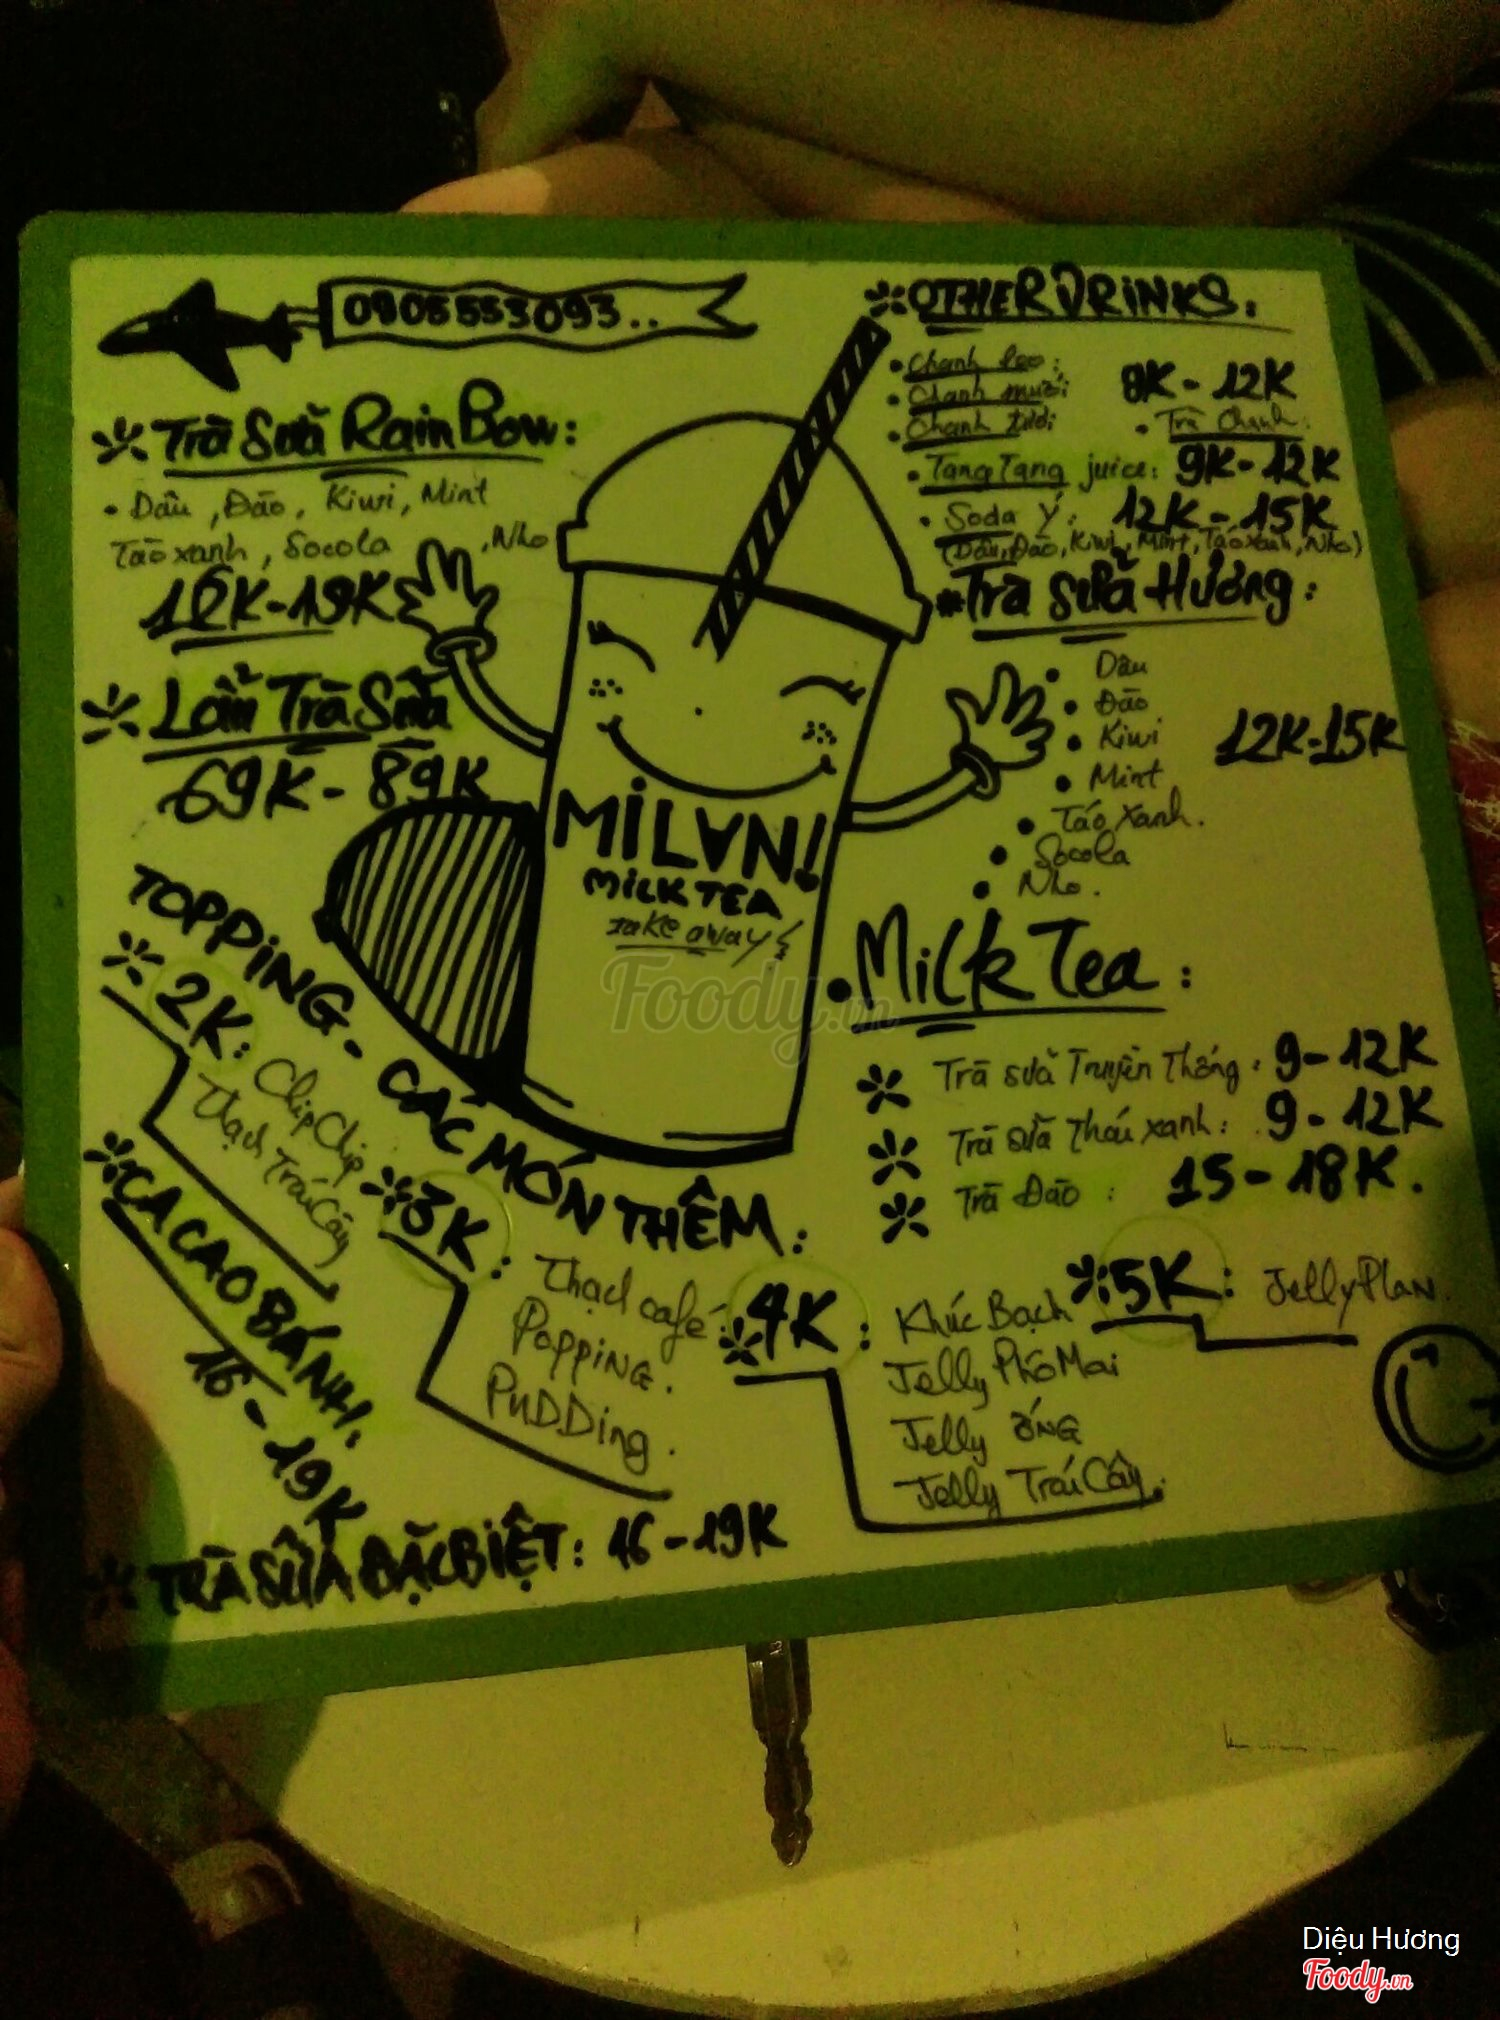 0905553093..
Trà Sữa RainBow:
• Dâu, Đào, Kiwi, Mint
Táo xanh, Socola, Nho
16K-19K
Lẩu Trà Sữa
69K - 89K
MiLANI
MiLK TEA
Take away
OTHER DRINKS:
• Chanh leo:
• Chanh muối 8K - 12K
• Chanh tươi • Trà Chanh:
• Tang Tang juice: 9K-12K
• Soda Ý: 12K - 15K
(Dâu, Đào, Kiwi, Mint, Táo xanh, Nho)
Trà sữa Hương:
• Dâu
• Đào
• Kiwi 12K-15K
• Mint
• Táo Xanh.
• Socola
• Nho.
• Milk Tea:
Trà sữa Truyền Thống: 9-12K
Trà sữa Thái xanh: 9-12K
Trà Đào: 15-18K.
TOPPiNG - CÁC MÓN THÊM:
2K: ChipChip
Thạch Trái Cây
3K: Thạch café
PoppiNG.
PuDDing.
4K: Khúc Bạch
Jelly Phô Mai
Jelly ỐNG
Jelly Trái Cây.
5K: Jelly Plan.
CACAO BÁNH:
16-19K
TRÀ SỮA ĐẶC BiỆT: 16-19K
Foody.vn
Diệu Hương
Foody.vn